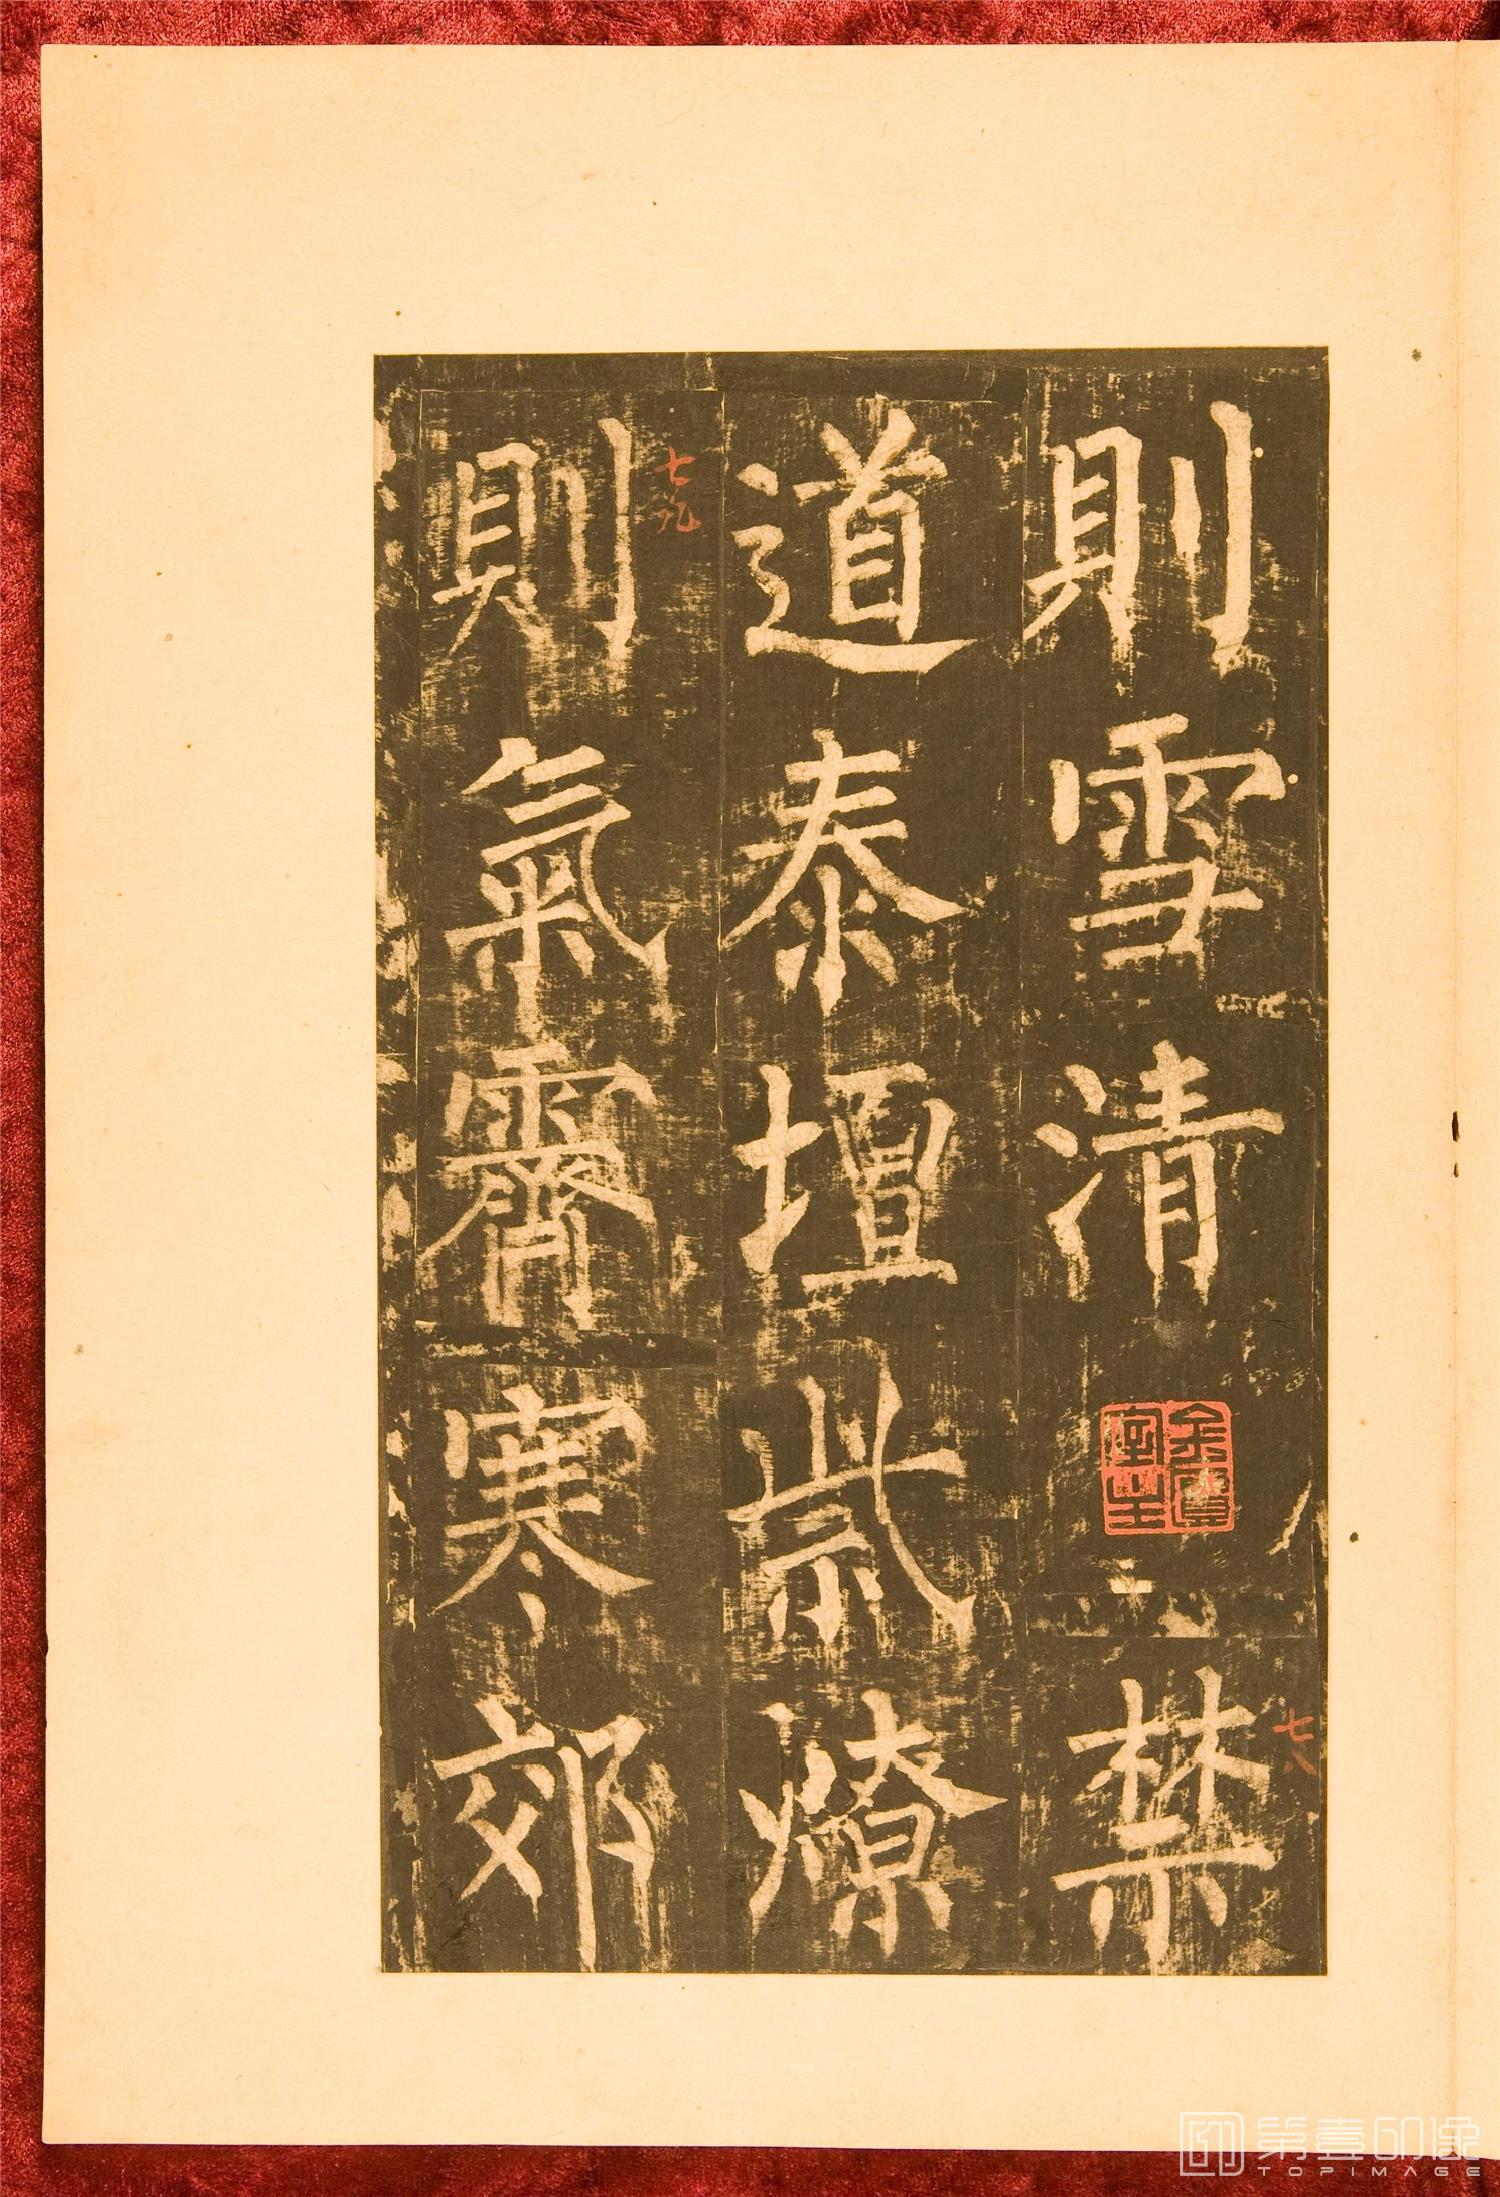 則雪清禁
道泰壇祡燎
則氣霽寒郊
七八
七九
第壹印像
TOPIMAGE